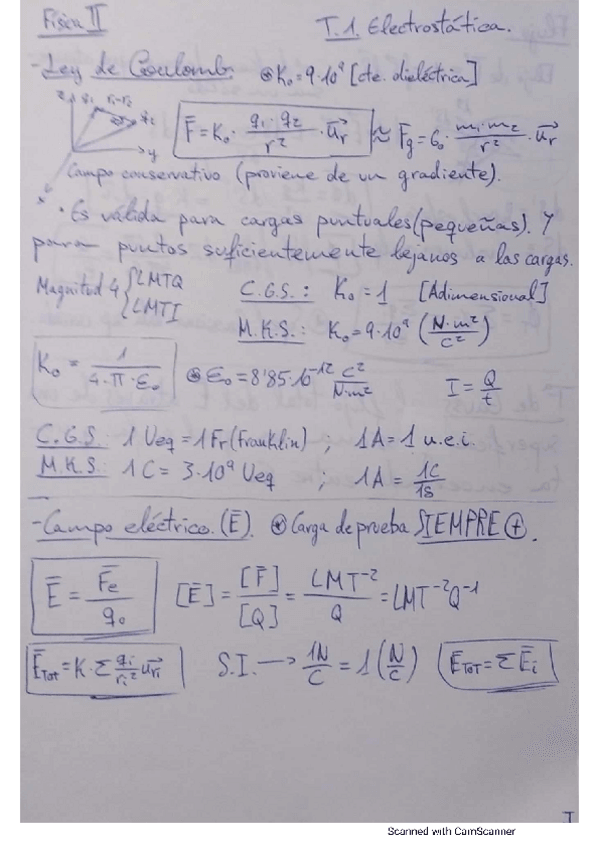 Física II T.1. Electrostática.
-Ley de Coulomb ⊛K₀=9·10⁹ [cte. dieléctrica]
z q₁ r₁-r₂ q₂ y x
F̄=K₀· q₁·q₂/r² ·u⃗r ≈ F̄g=G₀· m₁·m₂/r² ·u⃗r
Campo conservativo (proviene de un gradiente).
· Es válida para cargas puntuales (pequeñas). Y
para puntos suficientemente lejanos a las cargas.
Magnitud 4 { LMTQ LMTI
C.G.S.: K₀=1 [Adimensional]
M.K.S.: K₀=9·10⁹ (N·m²/C²)
K₀ = 1/(4·Π·ε₀) ⊛ε₀=8'85·10⁻¹² C²/N·m² I=Q/t
C.G.S. 1 Ueq=1Fr(Franklin) ; 1A=1 u.e.i.
M.K.S. 1C=3·10⁹ Ueq ; 1A=1C/1s
-Campo eléctrico.(Ē). ⊛ Carga de prueba SIEMPRE ⊕.
Ē = F̄e/q₀ [Ē]=[F̄]/[Q]=LMT⁻²/Q=LMT⁻²Q⁻¹
ĒTot=K·Σ qi/ri² u⃗ri S.I.→ 1N/C=1(N/C) ĒTOT=ΣĒi
I
Scanned with CamScanner